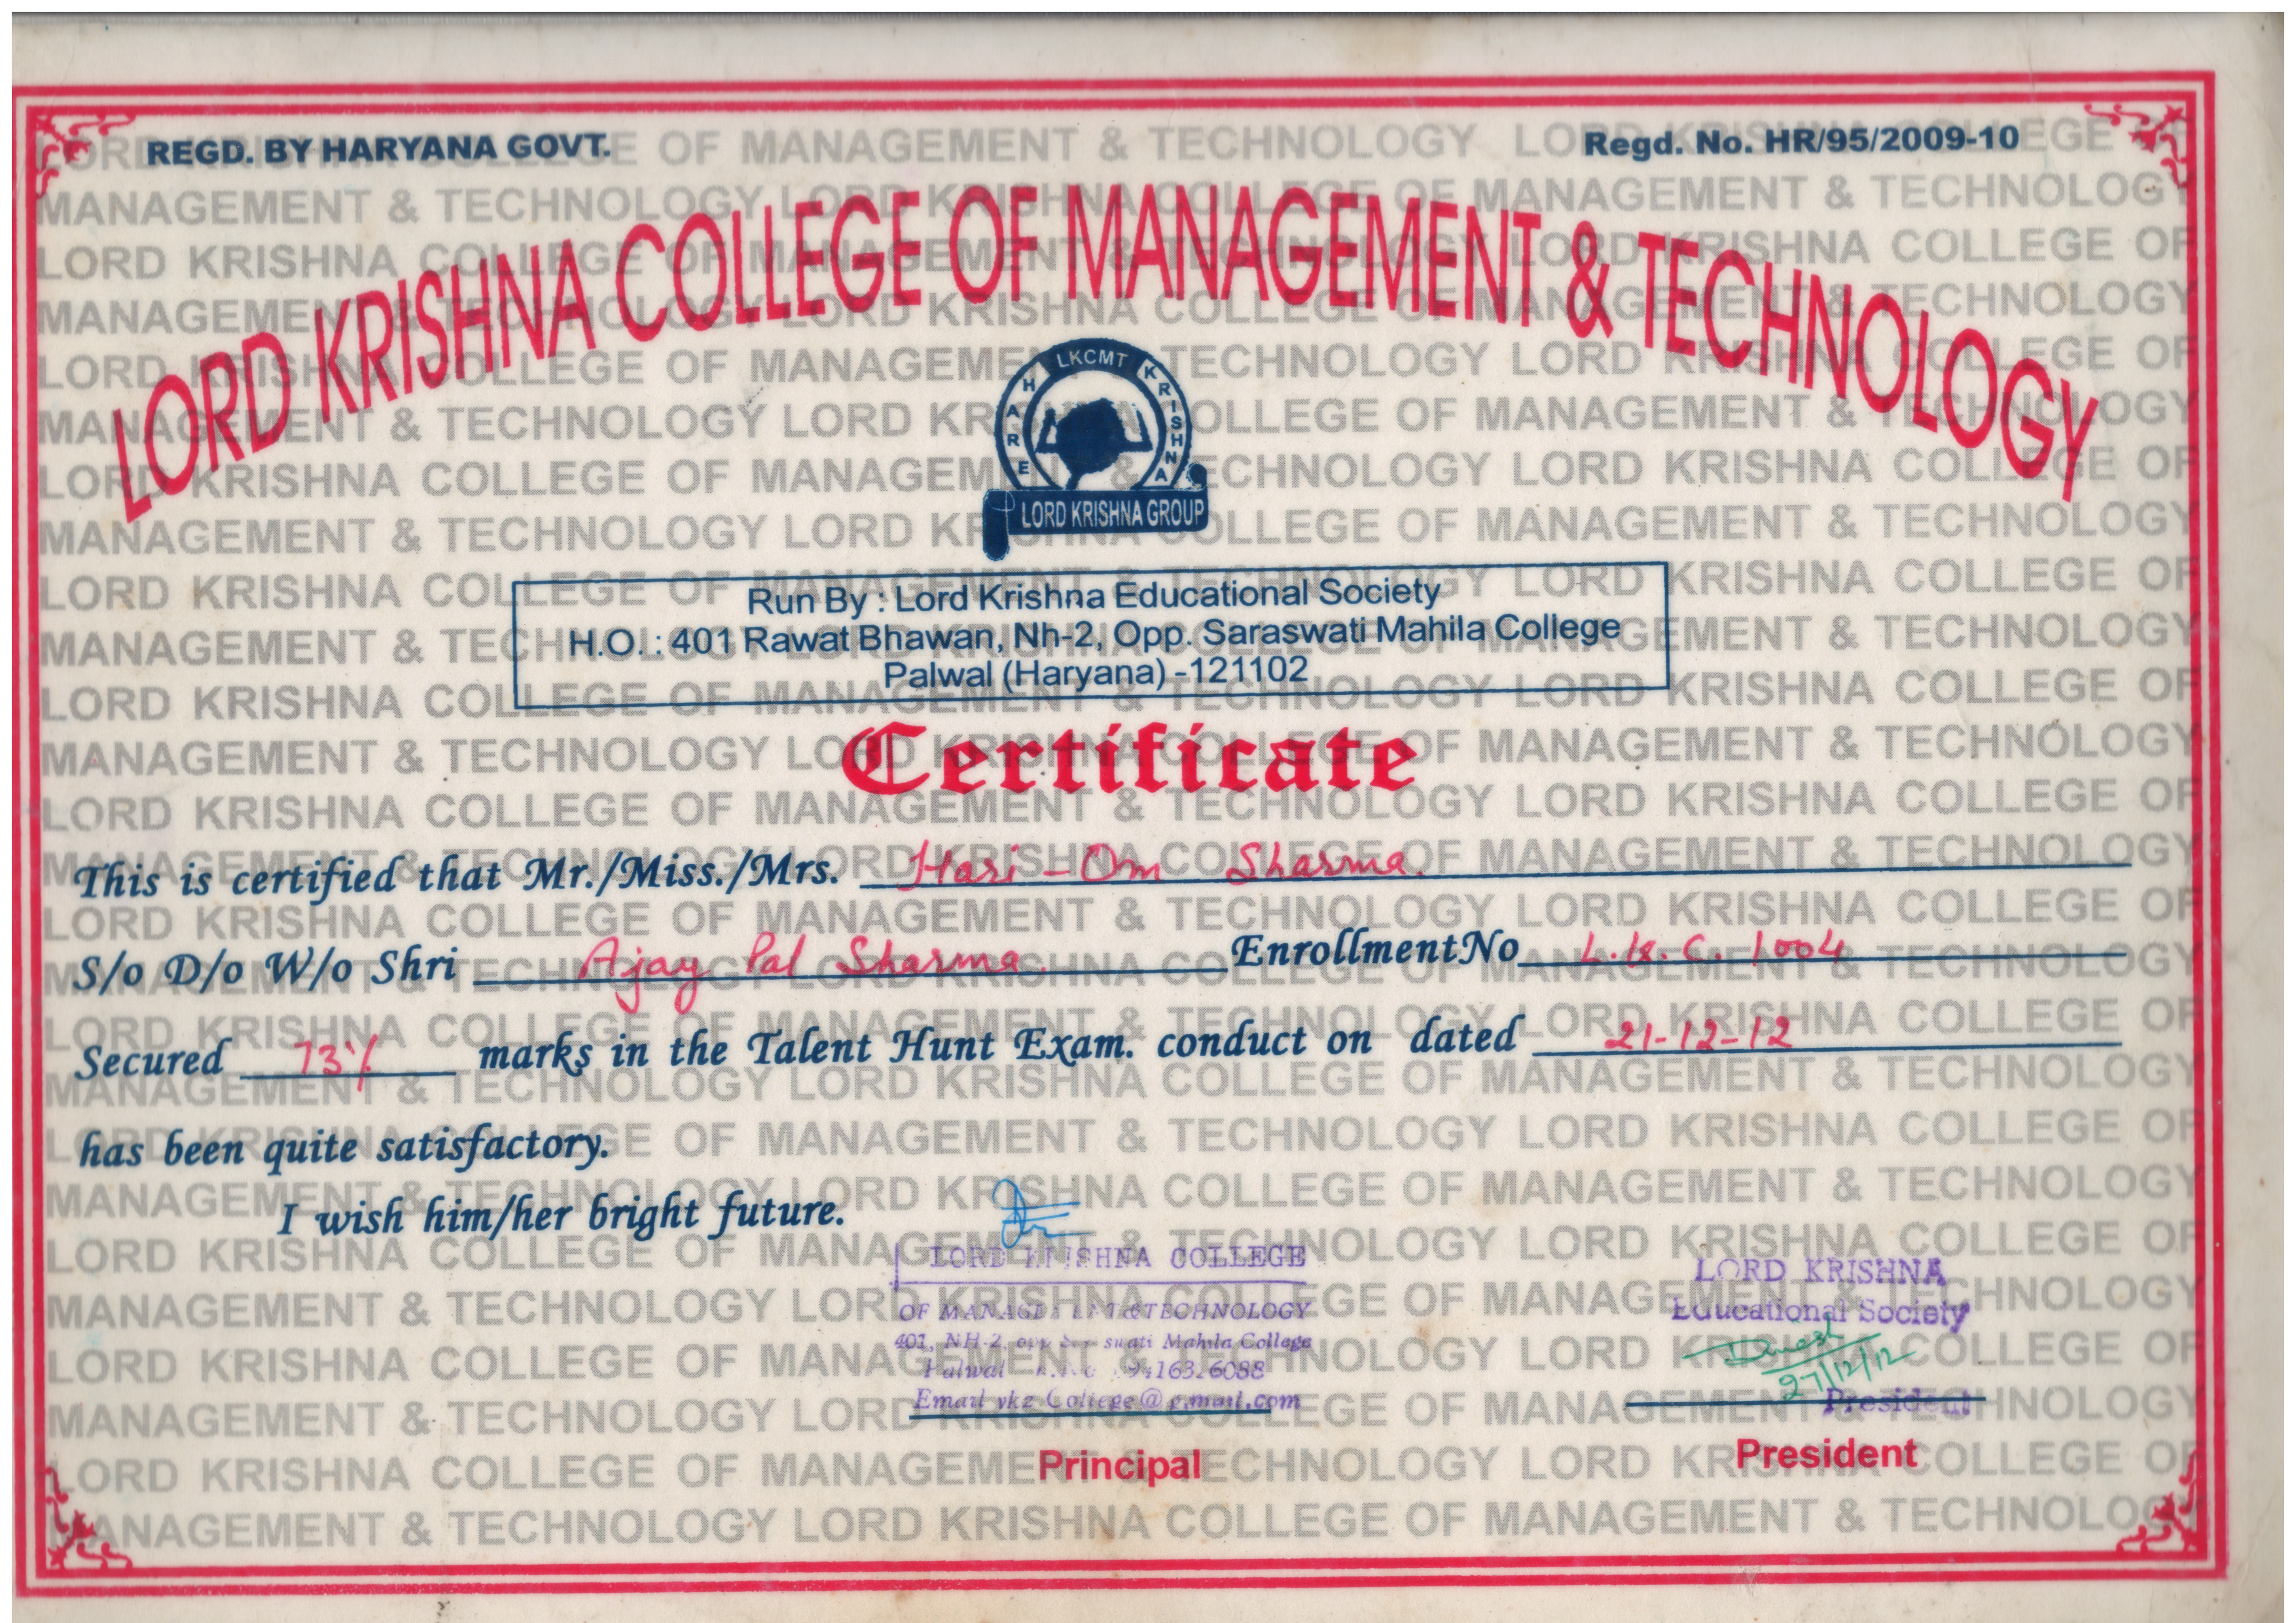 REGD. BY HARYANA GOVT. Regd. No. HR/95/2009-10
LORD KRISHNA COLLEGE OF MANAGEMENT & TECHNOLOGY
LKCMT
HARE KRISHNA
LORD KRISHNA GROUP
Run By : Lord Krishna Educational Society
H.O. : 401 Rawat Bhawan, Nh-2, Opp. Saraswati Mahila College
Palwal (Haryana) -121102
Certificate
This is certified that Mr./Miss./Mrs. Hari-Om Sharma.
S/o D/o W/o Shri Ajay Pal Sharma. Enrollment No L.K.C. 1004
Secured 73% marks in the Talent Hunt Exam. conduct on dated 21-12-12
has been quite satisfactory.
I wish him/her bright future.
LORD KRISHNA COLLEGE
OF MANAGEMENT & TECHNOLOGY
401, NH-2, opp suati Mahila College
Palwal
Email vkz College@gmail.com
Principal
LORD KRISHNA
Educational Society
Dinesh
27/12/12
President
President